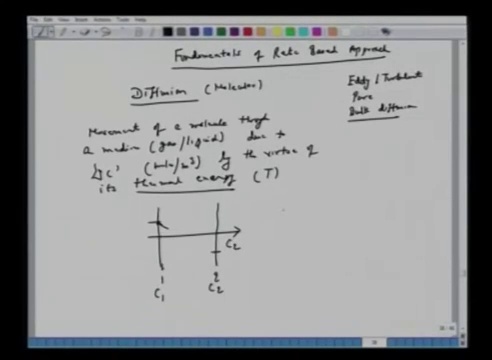 Fundamentals of Rate Based Approach
Diffusion (Molecular)
Eddy / Turbulent
Pore
Bulk diffusion
Movement of a molecule through
a medium (gas/liquid) due to
ΔC' (mole/m³) by the virtue of
its thermal energy (T)
C2
1 2
C1 C2